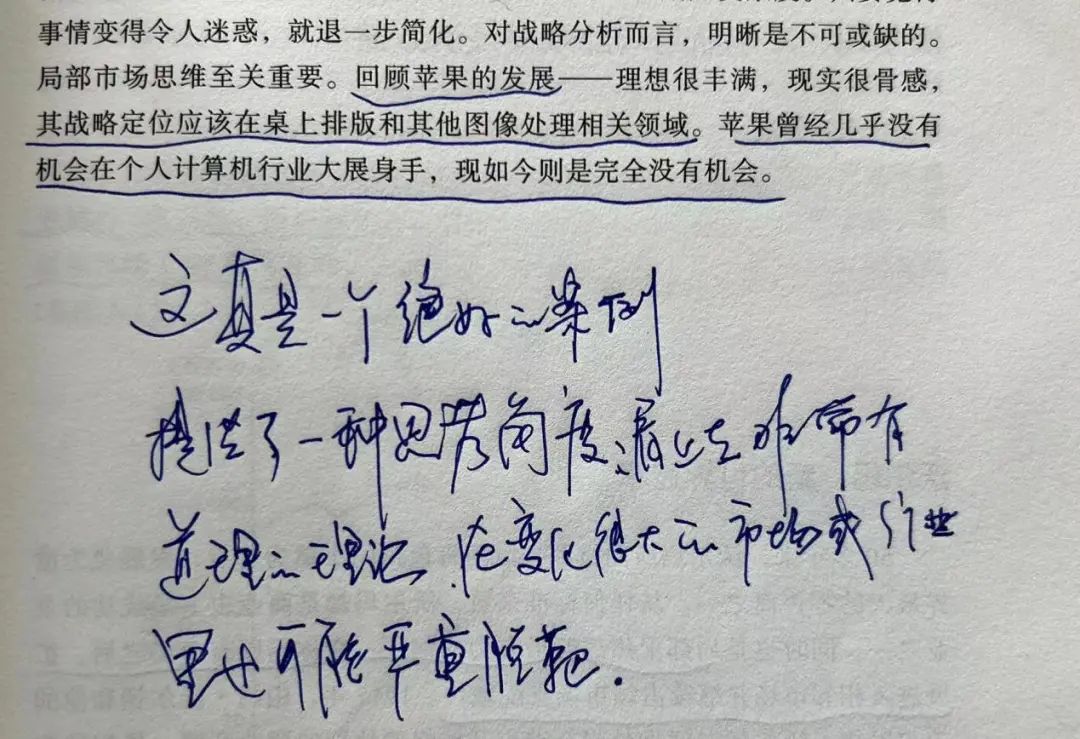 事情变得令人迷惑，就退一步简化。对战略分析而言，明晰是不可或缺的。
局部市场思维至关重要。回顾苹果的发展——理想很丰满，现实很骨感，
其战略定位应该在桌上排版和其他图像处理相关领域。苹果曾经几乎没有
机会在个人计算机行业大展身手，现如今则是完全没有机会。
这真是一个绝好的案例
提供了一种思考角度，看上去非常有
道理的理论，在变化很大的市场或行业
里也可能严重脱靶.